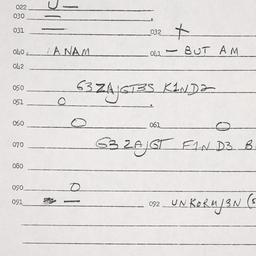 022
030
031 032 +
040 ANAM 041 — BUT AM
042
050 G3ZAJGT3S K1ND2
051 O
060 O 061 O
070 G3ZAJGT F1ND3 B
080
090 O
091 — 092 UNKORUJ3N (